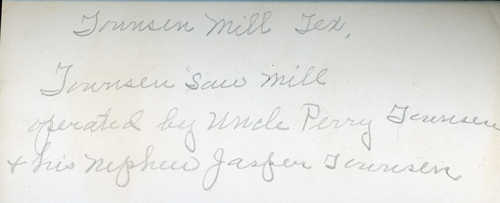 Townsen Mill Tex.
Townsen Saw Mill
operated by Uncle Perry Townsen
& his Nephew Jasper Townsen